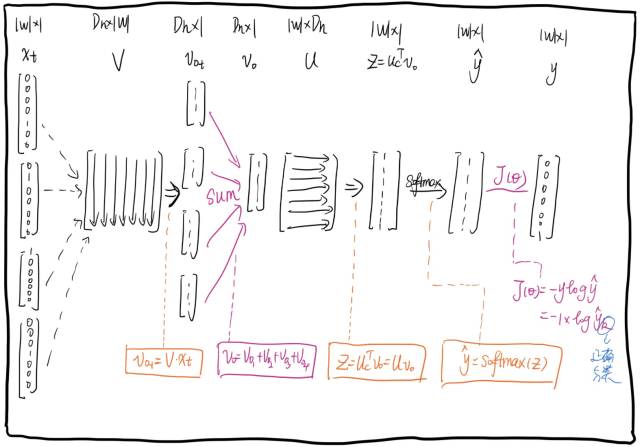 |W|×1 Dh×|W| Dh×1 Dh×1 |W|×Dh |W|×1 |W|×1 |W|×1
xt V vo1 vo U Z=Uc^T vo ŷ y
Sum
Softmax
J(θ)
J(θ)=-ylogŷ
=-1×logŷ
vo1=V·xt
vo=vo1+vo2+vo3+vo4
Z=Uc^T vo=Uvo
ŷ=Softmax(Z)